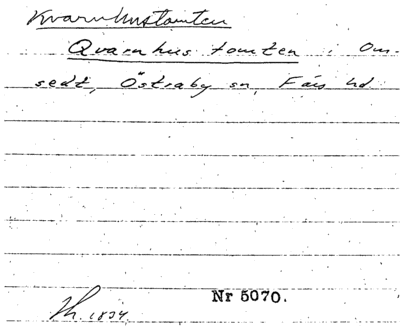 Kvarnhustomten
Qvarnhus tomten i Om-
sedt, Östraby sn, Färs hd
Th. 1834
Nr 5070.